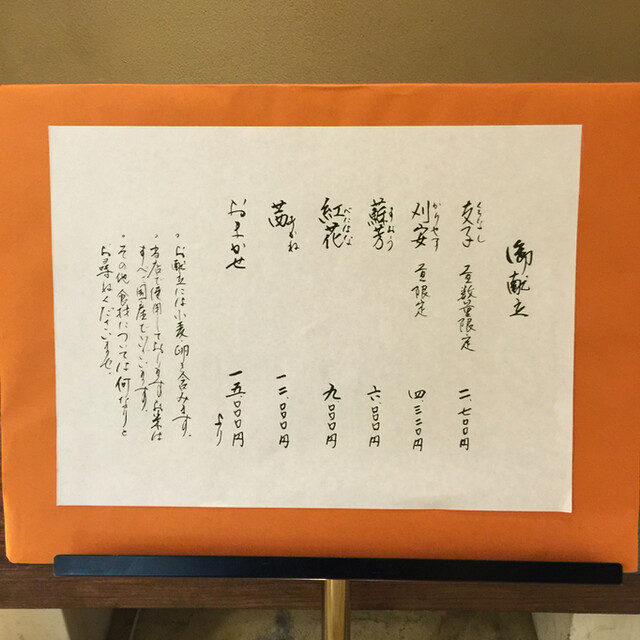 御献立
支子 くちなし 昼数量限定 二、七〇〇円
刈安 かりやす 昼限定 四、三二〇円
蘇芳 すおう 六、〇〇〇円
紅花 べにばな 九、〇〇〇円
茜 あかね 一二、〇〇〇円
おまかせ 一五、〇〇〇円より
・お献立には小麦、卵を含みます。
・当店で使用しておりますお米は
すべて国産でございます。
・その他食材については何なりと
お尋ねくださいませ。